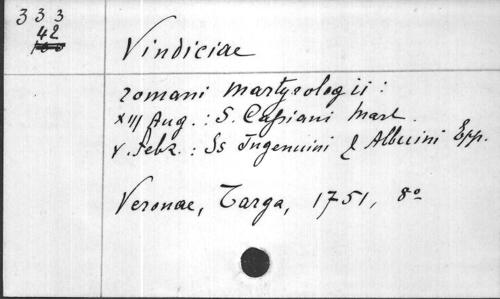 333
42
Vindiciae
romani martyrologii:
XIII Aug.: S. Cassiani Mart.
V. Febr.: Ss Ingenuini & Albuini Epp.
Veronae, Targa, 1751, 8o